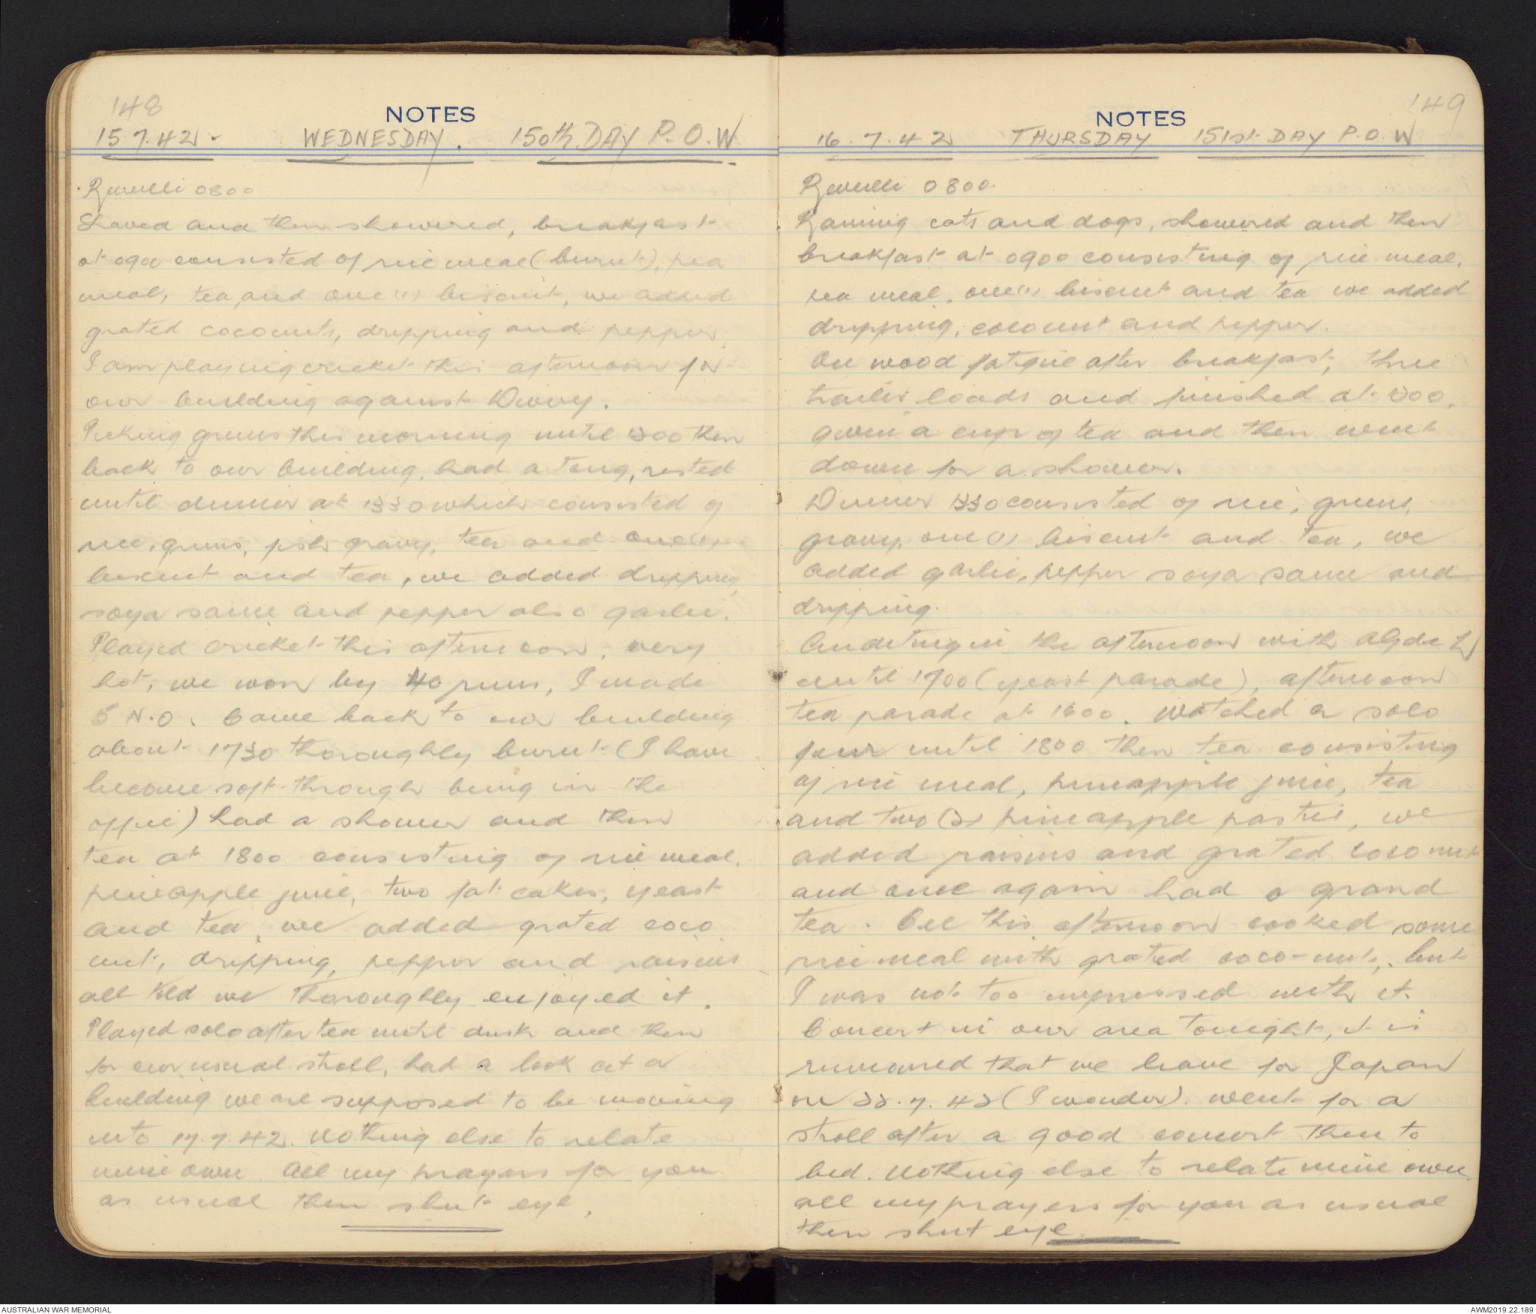 148
NOTES
15.7.42. WEDNESDAY. 150th DAY P.O.W
Revielli 0800
Shaved and then showered, breakfast
at 0900 consisted of rice meal (burnt), pea
meal, tea and one (1) biscuit, we added
grated coconuts, dripping and pepper.
I am playing cricket this afternoon for
our building against Divvy.
Picking greens this morning until 1200 then
back to our building, had a tong, rested
until dinner at 1230 which consisted of
rice, greens, fish gravy, tea and one (1)
biscuit and tea, we added dripping,
soya sauce and pepper also garlic.
Played cricket this afternoon, very
hot, we won by 40 runs, I made
5 N.O. Came back to our building
about 1730 thoroughly burnt (I have
become soft through being in the
office) had a shower and then
tea at 1800 consisting of rice meal,
pineapple juice, two fat cakes, yeast
and tea, we added grated coco
nut, dripping, pepper and raisins
all told we thoroughly enjoyed it.
Played solo after tea until dusk and then
for our usual stroll, had a look at a
building we are supposed to be moving
into 17.7.42. Nothing else to relate
mine own all my prayers for you
as usual then shut eye.
149
NOTES
16.7.42 THURSDAY 151st DAY P.O.W
Revielli 0800.
Raining cats and dogs, showered and then
breakfast at 0900 consisting of rice meal,
pea meal, one (1) biscuit and tea we added
dripping, coconut and pepper.
On wood fatigue after breakfast, three
trailer loads and finished at 1200,
given a cup of tea and then went
down for a shower.
Dinner 1230 consisted of rice, greens,
gravy, one (1) biscuit and tea, we
added garlic, pepper soya sauce and
dripping.
in the afternoon with
until 1700 (yeast parade), afternoon
tea parade at 1600. Watched a solo
four until 1800 then tea consisting
of rice meal, pineapple juice, tea
and two (2) pineapple pasties, we
added raisins and grated coconut
and once again had a grand
tea. Cec this afternoon cooked some
rice meal with grated coco-nut, but
I was not too impressed with it.
Concert in our area tonight, it is
rumoured that we leave for Japan
on 22.7.42 (I wonder). Went for a
stroll after a good concert then to
bed. Nothing else to relate mine own
all my prayers for you as usual
then shut eye.
AUSTRALIAN WAR MEMORIAL
AWM2019.22.189